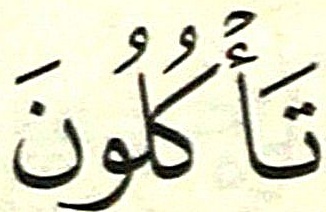 تَأْكُلُونَ